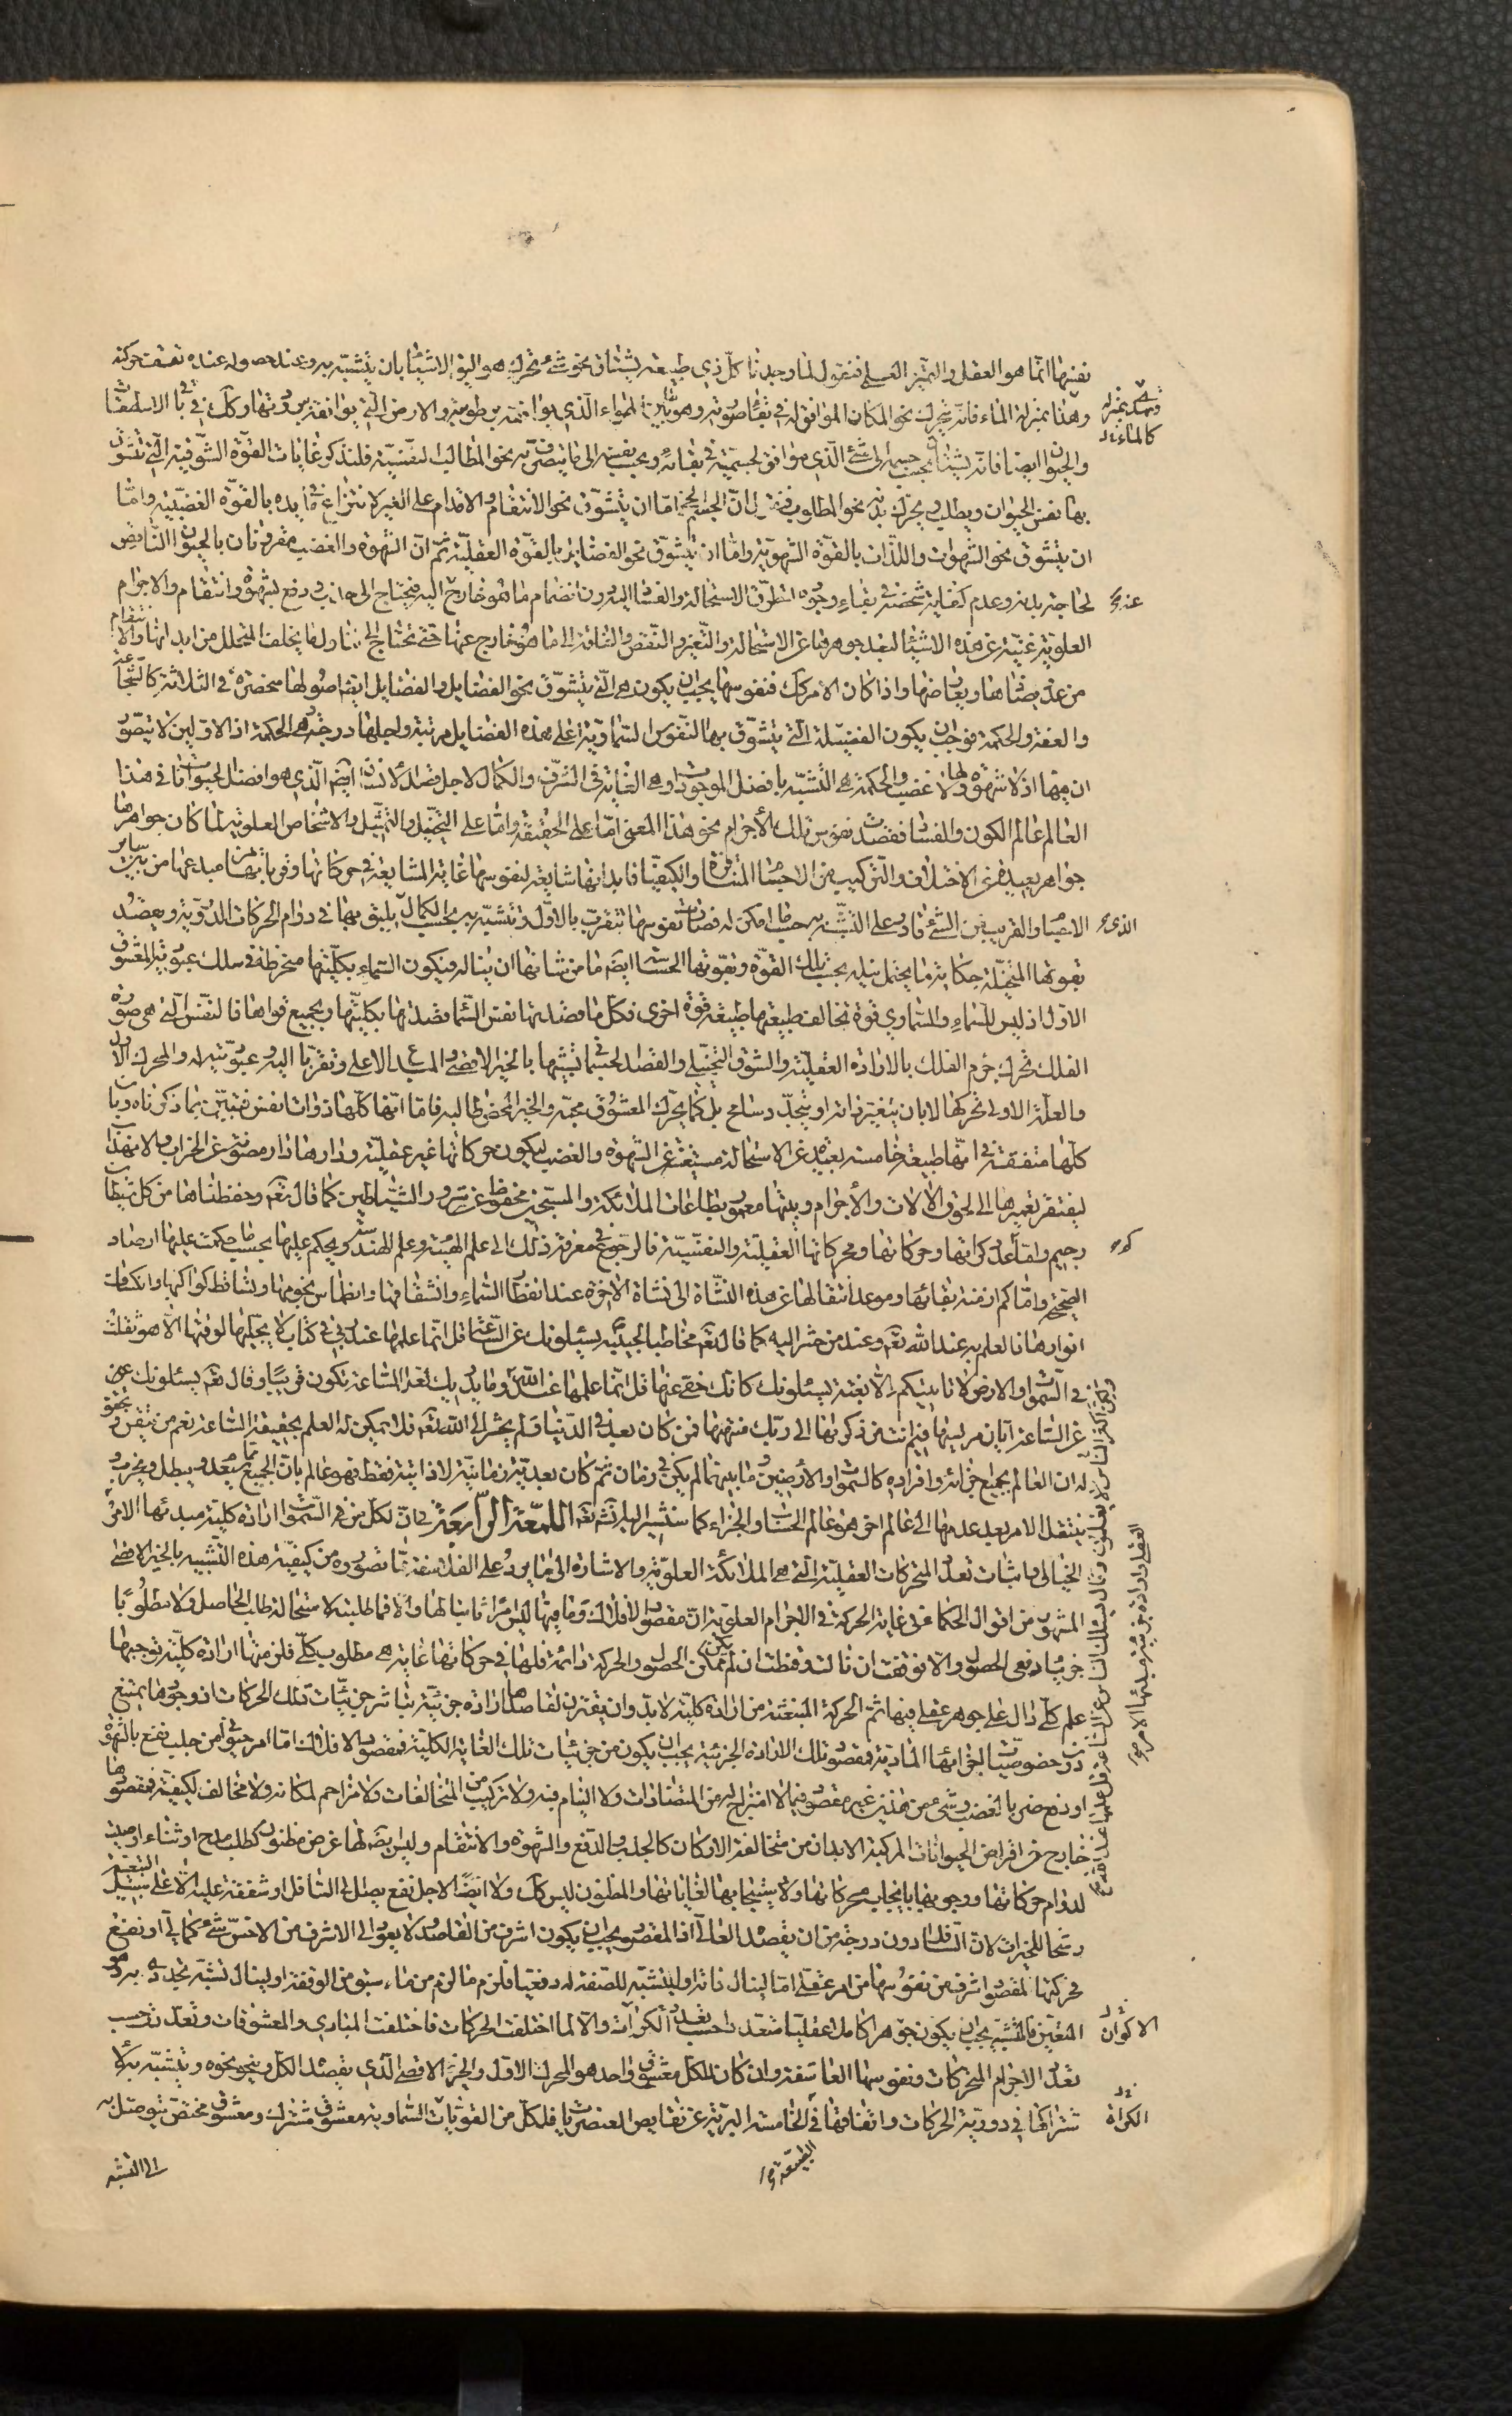 نفسها انما هو العقل والتميز العقلى فنقول لما وجدنا كل ذى طبيعة يشتاق نحو شئ تحرك هو اليه الاشياء بان يتشبه به وعند حصوله عنده تقف حركته
وهذا بمنزلة الماء فانه يتحرك نحو المكان الموافق له فى بقاء صورته وهو ما بين الهواء الذى يوافقه برطوبته والارض التى يوافقه ببرودتها وكك فى باقى الاسطقسات
والحيوان ايضا فانه يشتاق بحسب جسمه الى الشئ الذى موافق لجسميته فى بقائه وبحسب نفسه الى ما يتصرف به نحو المطالب النفسية فلنذكر غايات القوة الشوقية التى تتشوق
بها نفس الحيوان ويطلب ويحرك بدنه نحو المطلوب فنقول ان الجسم الحى اما ان يتشوق نحو الانتقام والاقدام على الغير لانتزاع ما فى يده بالقوة الغضبية واما
ان يتشوق نحو الشهوات واللذات بالقوة الشهوية واما ان يتشوق نحو الفضايل بالقوة العقلية ثم ان الشهوة والغضب مقرونان بالحيوان الناقص
لحاجة بدنه وعدم كفاية شخصه فى بقاء وجوده لتطرق الاستحالة والفساد اليه دون انضمام ما هو خارج اليه فيحتاج الى جذب ودفع بشهوة وانتقام والاجرام
العلوية غنية عن هذه الاشياء لبعد جوهرها عن الاستحالة والتغير والنقص والفاقة الى ما هو خارج عنها حتى تحتاج الى تناول ما يخلف المتحلل من ابدانها والانتقام
من عدو يضادها ويعارضها واذا كان الامر كك فنفوسها يجب ان يكون هى التى يتشوق نحو الفضايل والفضايل ايضا اصولها منحصرة فى الثلاثة كالشجاعة
والعفة والحكمة فوجب ان يكون الفضيلة التى يتشوق بها النفوس السماوية اعلى هذه الفضايل مرتبة واجلها درجة وهى الحكمة اذ الاوليين لا يتصور
ان فيها اذ لا شهوة لها ولا غضب والحكمة هى التشبه بافضل الموجودات وهى الغاية فى الشرف والكمال لاجل فضل الانسان ايضا الذى هو افضل الحيوانات فى هذا
العالم عالم الكون والفساد فقصدت نفوس تلك الأجرام نحو هذا المعنى اما على الحقيقة واما على التخيل والتمثيل والاشخاص العلوية لما كان جواهرها
جواهر بعيدة عن الاختلاف والتركيب من الاجسام المتنافرة والكيفيات فابدانها شايعة لنفوسها غاية المشايعة فى حركاتها وقرباتها من مبدعها من بين ساير
الاجسام والقريب من الشئ قادر على التشبه به حسب ما امكن له فصارت نفوسها تتقرب بالاول وتتشبه به بحسب الكمال يليق بها فى دوام الحركات الدورية ويقصد
بقوتها المتخيلة حكاية ما يحتمل نيله بحسب تلك القوة وبقوتها الحساسة ايضا ما من شانها ان يناله فيكون السماء بكليتها منخرطة فى سلك عبودية المعشوق
الاول اذ ليس للسماء والسماوى قوة تخالف طبيعتها طبيعة قوة اخرى فكل ما قصدتها نفس السماء قصدتها بكليتها وبجميع قواها فالنفس التى هى صورة
الفلك تحرك جرم الفلك بالارادة العقلية والشوق التخيلى والقصد الحسى تشبها بالخير الاقصى والمبدع الاعلى وتقربا اليه وعبودية له والمحرك الاول
والعلة الاولى تحركها لا بان يتغير ذاته او يتجدد سانح بل كما يحرك المعشوق محبه والخير المحض طالبه فاما انها كلها ذوات انفس فتبين بما ذكرناه وبان
كلها متفقة فى انها طبيعة خامسة بعيدة عن الاستحالة مستغنية عن الشهوة والغضب ليكون حركاتها غير عقلية ودارها دار مصونة عن الخراب والانهدام
ليفتقر تعميرها الى لحوق الآلات والأجرام وبيتها معمور بطاعات الملائكة والمسبحين محفوظ عن شرور الشياطين كما قال تعه وحفظناها من كل شيطان
رجيم واما عدد كراتها وحركاتها ومحركاتها العقلية والنفسية فالرجوع فى معرفة ذلك الى علم الهيئة وعلم الهندسة ويحكم عليها بحسب ما حكمت عليها ارصاد
الصحيحة واما كم ازمنة بقائها وموعد انتقالها عن هذه النشاة الى نشاة الاخرة عند انفطار السماء وانشقاقها وانطماس نجومها وتساقط كواكبها وانكساف
انوارها فالعلم به عند الله تعه وعند من حشر اليه كما قال تعه مخاطبا لحبيبه يسئلونك عن الساعة قل انما علمها عند ربى فى كتاب لا يجليها لوقتها الا هو ثقلت
فى السموات والارض لا تاتيكم الا بغتة يسئلونك كانك حفى عنها قل انما علمها عند الله وما يدريك لعل الساعة تكون قريبا وقال تعه يسئلونك
عن الساعة ايان مرسيها فيم انت من ذكريها الى ربك منتهيها فمن كان بعد فى الدنيا ولم يحشر الى الله تعه فلا يمكن له العلم بحقيقة الساعة نعم من تيقن وتحقق
له ان العالم بجميع اجزائه وافراده كالسموات والأرضين وما بينهما لم يكن فى زمان ثم كان بعدية زمانية لا ذاتية فقط فهو عالم بان الجميع مما سيعدم ويبطل ويخرب و
ينتقل الامر بعد عدمها الى عالم اخر هو عالم الحساب والجزاء كما سنشير اليه انشاء الله تعه اللمعة الرابعة فى ان لكل من فى السموات ارادة كلية مبدئها الامر
الخيالى واثبات تعدد المتحركات العقلية التى هى الملائكة العلوية والاشارة الى ما يرد على الفلاسفة مما تصوره من كيفية هذه التشبيه بالخير الاقصى
المشهور من اقوال الحكما فى غاية الحركة فى الاجرام العلوية ان مقصود الافلاك وما فيها ليس مرا ثابتا لها والا فما طلبته لاستحالة طلب الحاصل ولا مطلوبا
جزئيا دفعى الحصول والا فوقفت ان نالت وقنطت ان لم يكن ممكن الحصول والحركة دائمة فلها فى حركاتها غاية هى مطلوب كلى فلزم منها ارادة كلية توجبها
علم كلى دال على جوهر عقلى فيها ثم الحركة المنبعثة من ارادة كلية لا بد وان يقترن لقاصدها ارادة جزئية يباشر جزئيات تلك الحركات اذ وجودها يمتنع
بدون خصوصيات الجزائها المادية فمقصود تلك الارادة الجزئية يجب ان يكون من جزئيات تلك الغاية الكلية فمقصود الافلاك اما امر حيوانى من جلب نفع بالشهوة
او دفع ضر بالغضب وشئ من هذين غير مقصود فيما لا امتزاج له من المتضادات ولا التيام فيه ولا تركيب من المتخالفات ولا مزاحم لمكانه ولا مخالف لكيفيته فمقصودها
خارج عن اغراض الحيوانات المركبة الابدان من متخالفة الاركان كالجذب والدفع والشهوة والانتقام وليس ايضا لها غرض مظنون كطلب مدح او ثناء او صيت
لدوام حركاتها ووجوبها بايجاب محركاتها ولاستيجابها لغاياتها والمظنون ليس كك ولا ايضا لاجل نفع يصل الى السافل او شفقة عليه الا على سبيل
رشحا للخيرات لان السافل ادون درجة من ان يقصده العالى اذ المقصود يجب ان يكون اشرف من القاصد ولا يعود الى الاشرف من الاخس شئ كمالى او نفع
فحركتها لمقصود اشرف من نفوسها من امر عقلى اما لينال ذاته او ليتشبه للصفة له دفعيا فلزم ما لزم من ما سبق من الوقفة او لينال تشبه تجددى به وهو
المتعين فالمتشبه يجب ان يكون جوهرا كاملا عقليا متعددا حسب تعدد الكرات والا لما اختلفت الحركات فاختلفت المبادى والمعشوقات وتعددت حسب
تعدد الاجرام المتحركات ونفوسها العاشقة وان كان للكل معشوق واحد هو المحرك الاول والخير الاقصى الذى يقصده الكل وينحو نحوه ويتشبه به لا
تشراكها فى دورية الحركات واتفاقها فى الخامسة البرية عن نقايص العنصريات فلكل من القويات السماوية معشوق مشترك ومعشوق مختص يتوصل به
الى التشبه
كالماء
الذى
الاكوان
الكراة
الطبيعة